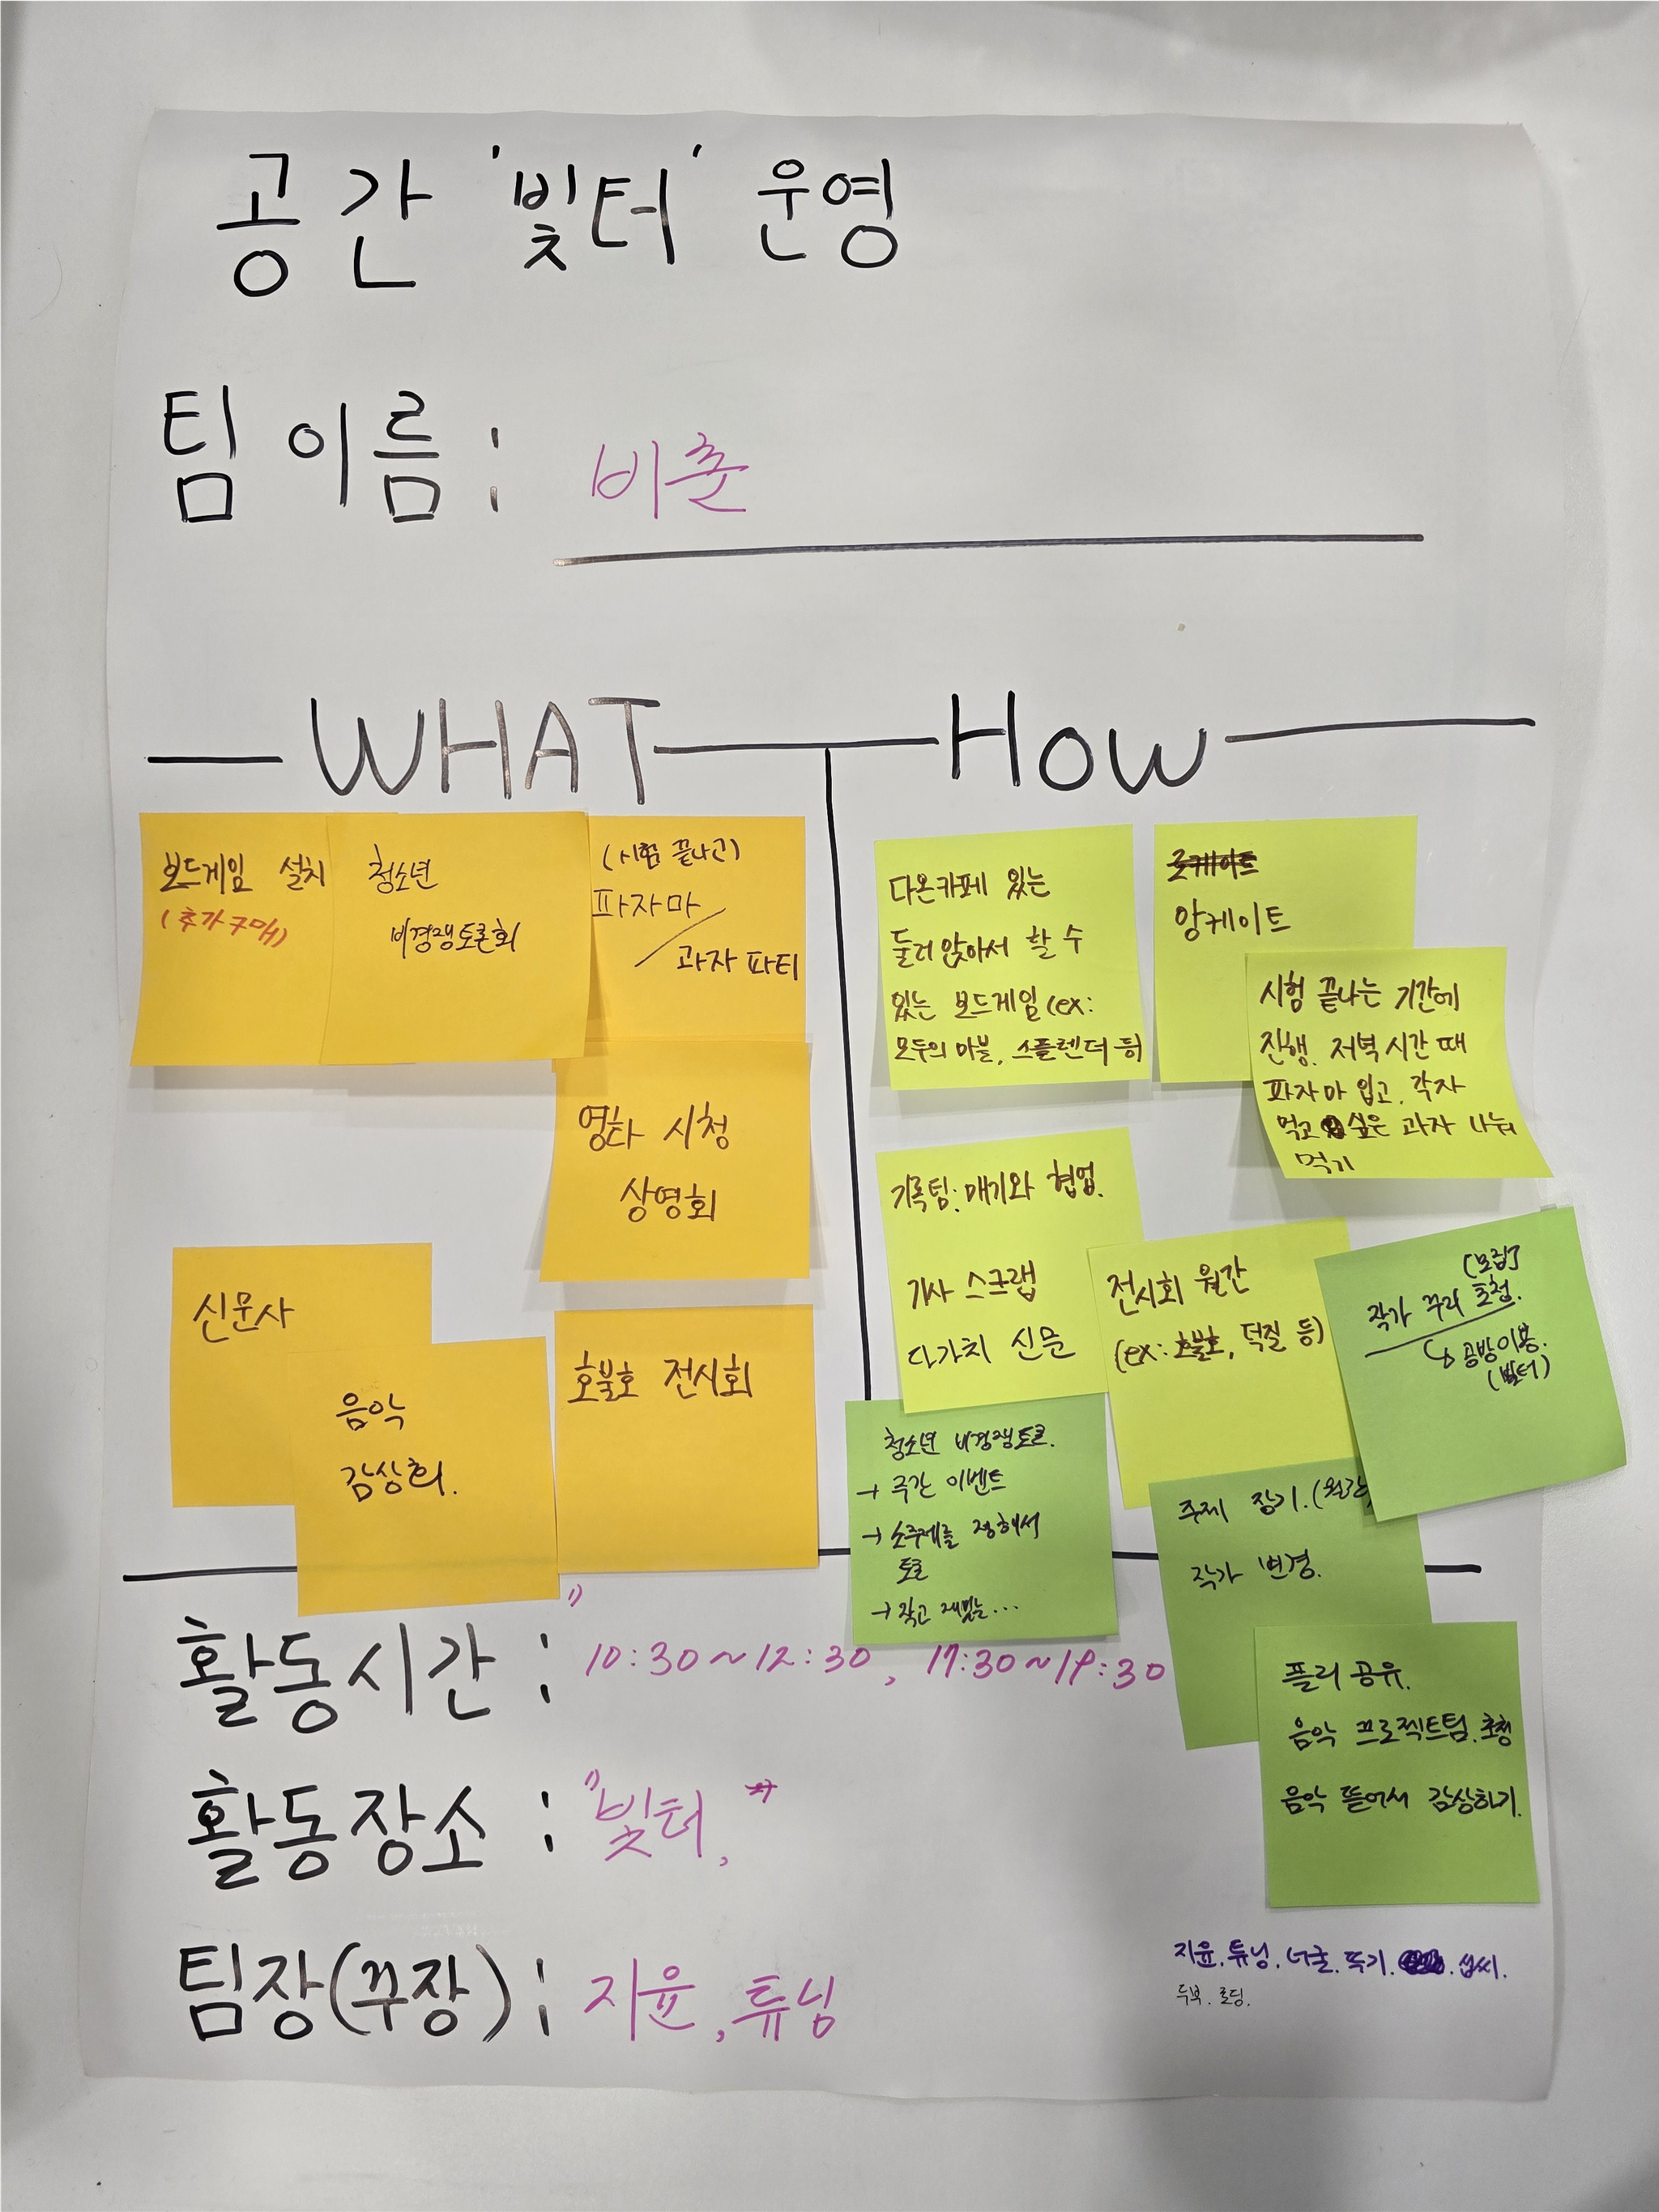 공간 '빛터' 운영
팀 이름 : 비춘
WHAT
보드게임 설치
(추가구매)
청소년
비경쟁토론회
(시험 끝나고)
파자마 /
과자 파티
영화 시청
상영회
신문사
음악
감상회.
호불호 전시회
How
다온카페 있는
둘러 앉아서 할 수
있는 보드게임 (ex:
모두의 마블, 스플렌더 등)
앙케이트
시험 끝나는 기간에
진행. 저녁 시간 때
파자마 입고, 각자
먹고 싶은 과자 나눠
먹기
기록팀: 매기와 협업.
기사 스크랩
다가치 신문
전시회 월간
(ex: 호불호, 덕질 등)
(모집)
작가 꾸러 초청.
↳ 공방이용.
(빛터)
청소년 비경쟁토론.
→ 주간 이벤트
→ 소주제를 정해서
토론
→ 작고 재밌는...
주제 장기.(월간)
작가 변경.
플리 공유.
음악 프로젝트팀. 초청
음악 뜰어서 감상하기.
활동시간 : 10:30~12:30, 17:30~19:30
활동장소 : "빛터,
팀장(꾸장) : 지윤, 튜닝
지윤. 튜닝. 너굴. 뚝기. 섭씨.
두부. 로딩.